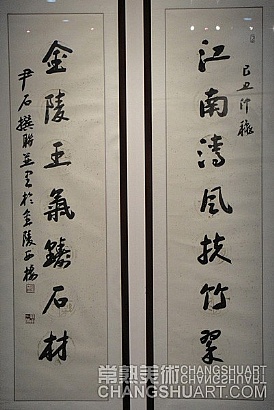 己丑仲穐
江南濤风扶竹翠
金陵王氣臻石材
尹石撰聯並書於金陵

常熟美術 CHANGSHUART
CHANGSHUART.COM